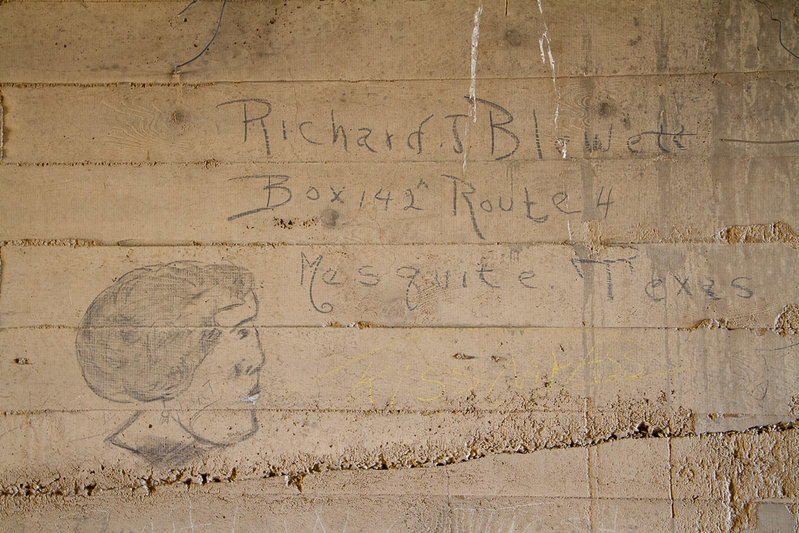 Richard. J. Blewett
Box 142 Route 4
Mesquite Texas